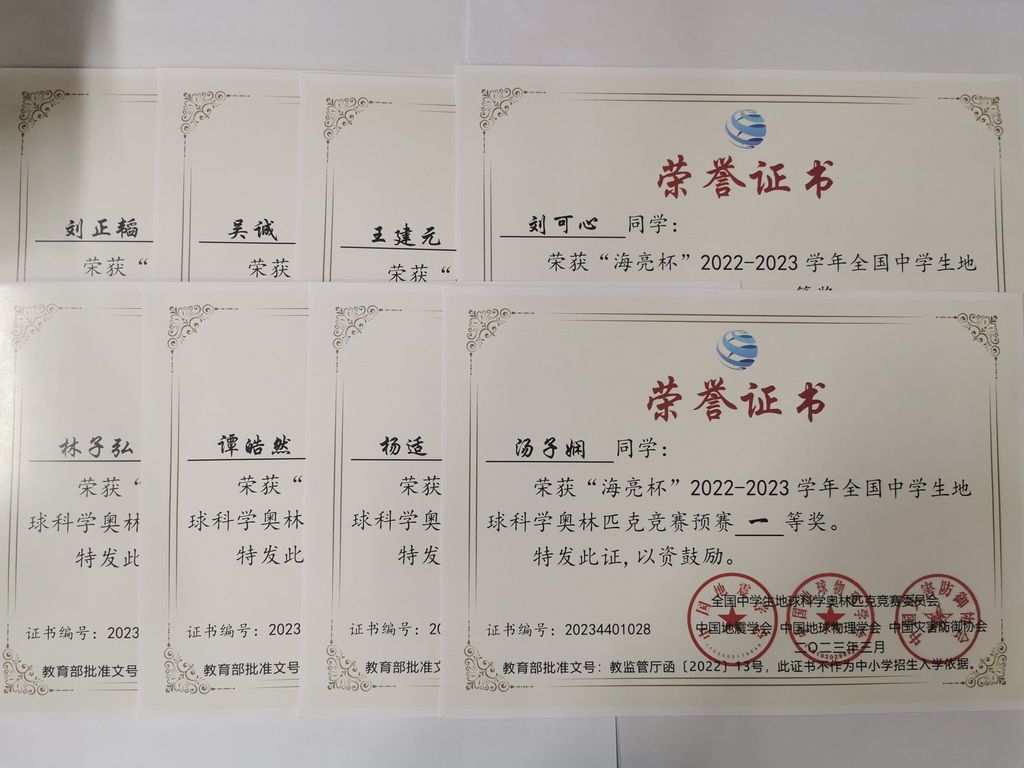 刘正韬
荣获“
吴诚
荣获
王建元
荣获“
荣誉证书
刘可心 同学：
荣获“海亮杯”2022-2023 学年全国中学生地
林子弘
荣获“
球科学奥林
特发此
证书编号：2023
教育部批准文号
谭皓然
荣获“
球科学奥林
特发此
证书编号：2023
教育部批准文号
杨适
荣获
球科学奥
特发
证书编号：20
教育部批准文号
荣誉证书
汤子娴 同学：
荣获“海亮杯”2022-2023 学年全国中学生地
球科学奥林匹克竞赛预赛 一 等奖。
特发此证，以资鼓励。
全国中学生地球科学奥林匹克竞赛委员会
证书编号：20234401028
中国地震学会 中国地球物理学会 中国灾害防御协会
二〇二三年三月
教育部批准文号：教监管厅函〔2022〕13号，此证书不作为中小学招生入学依据。